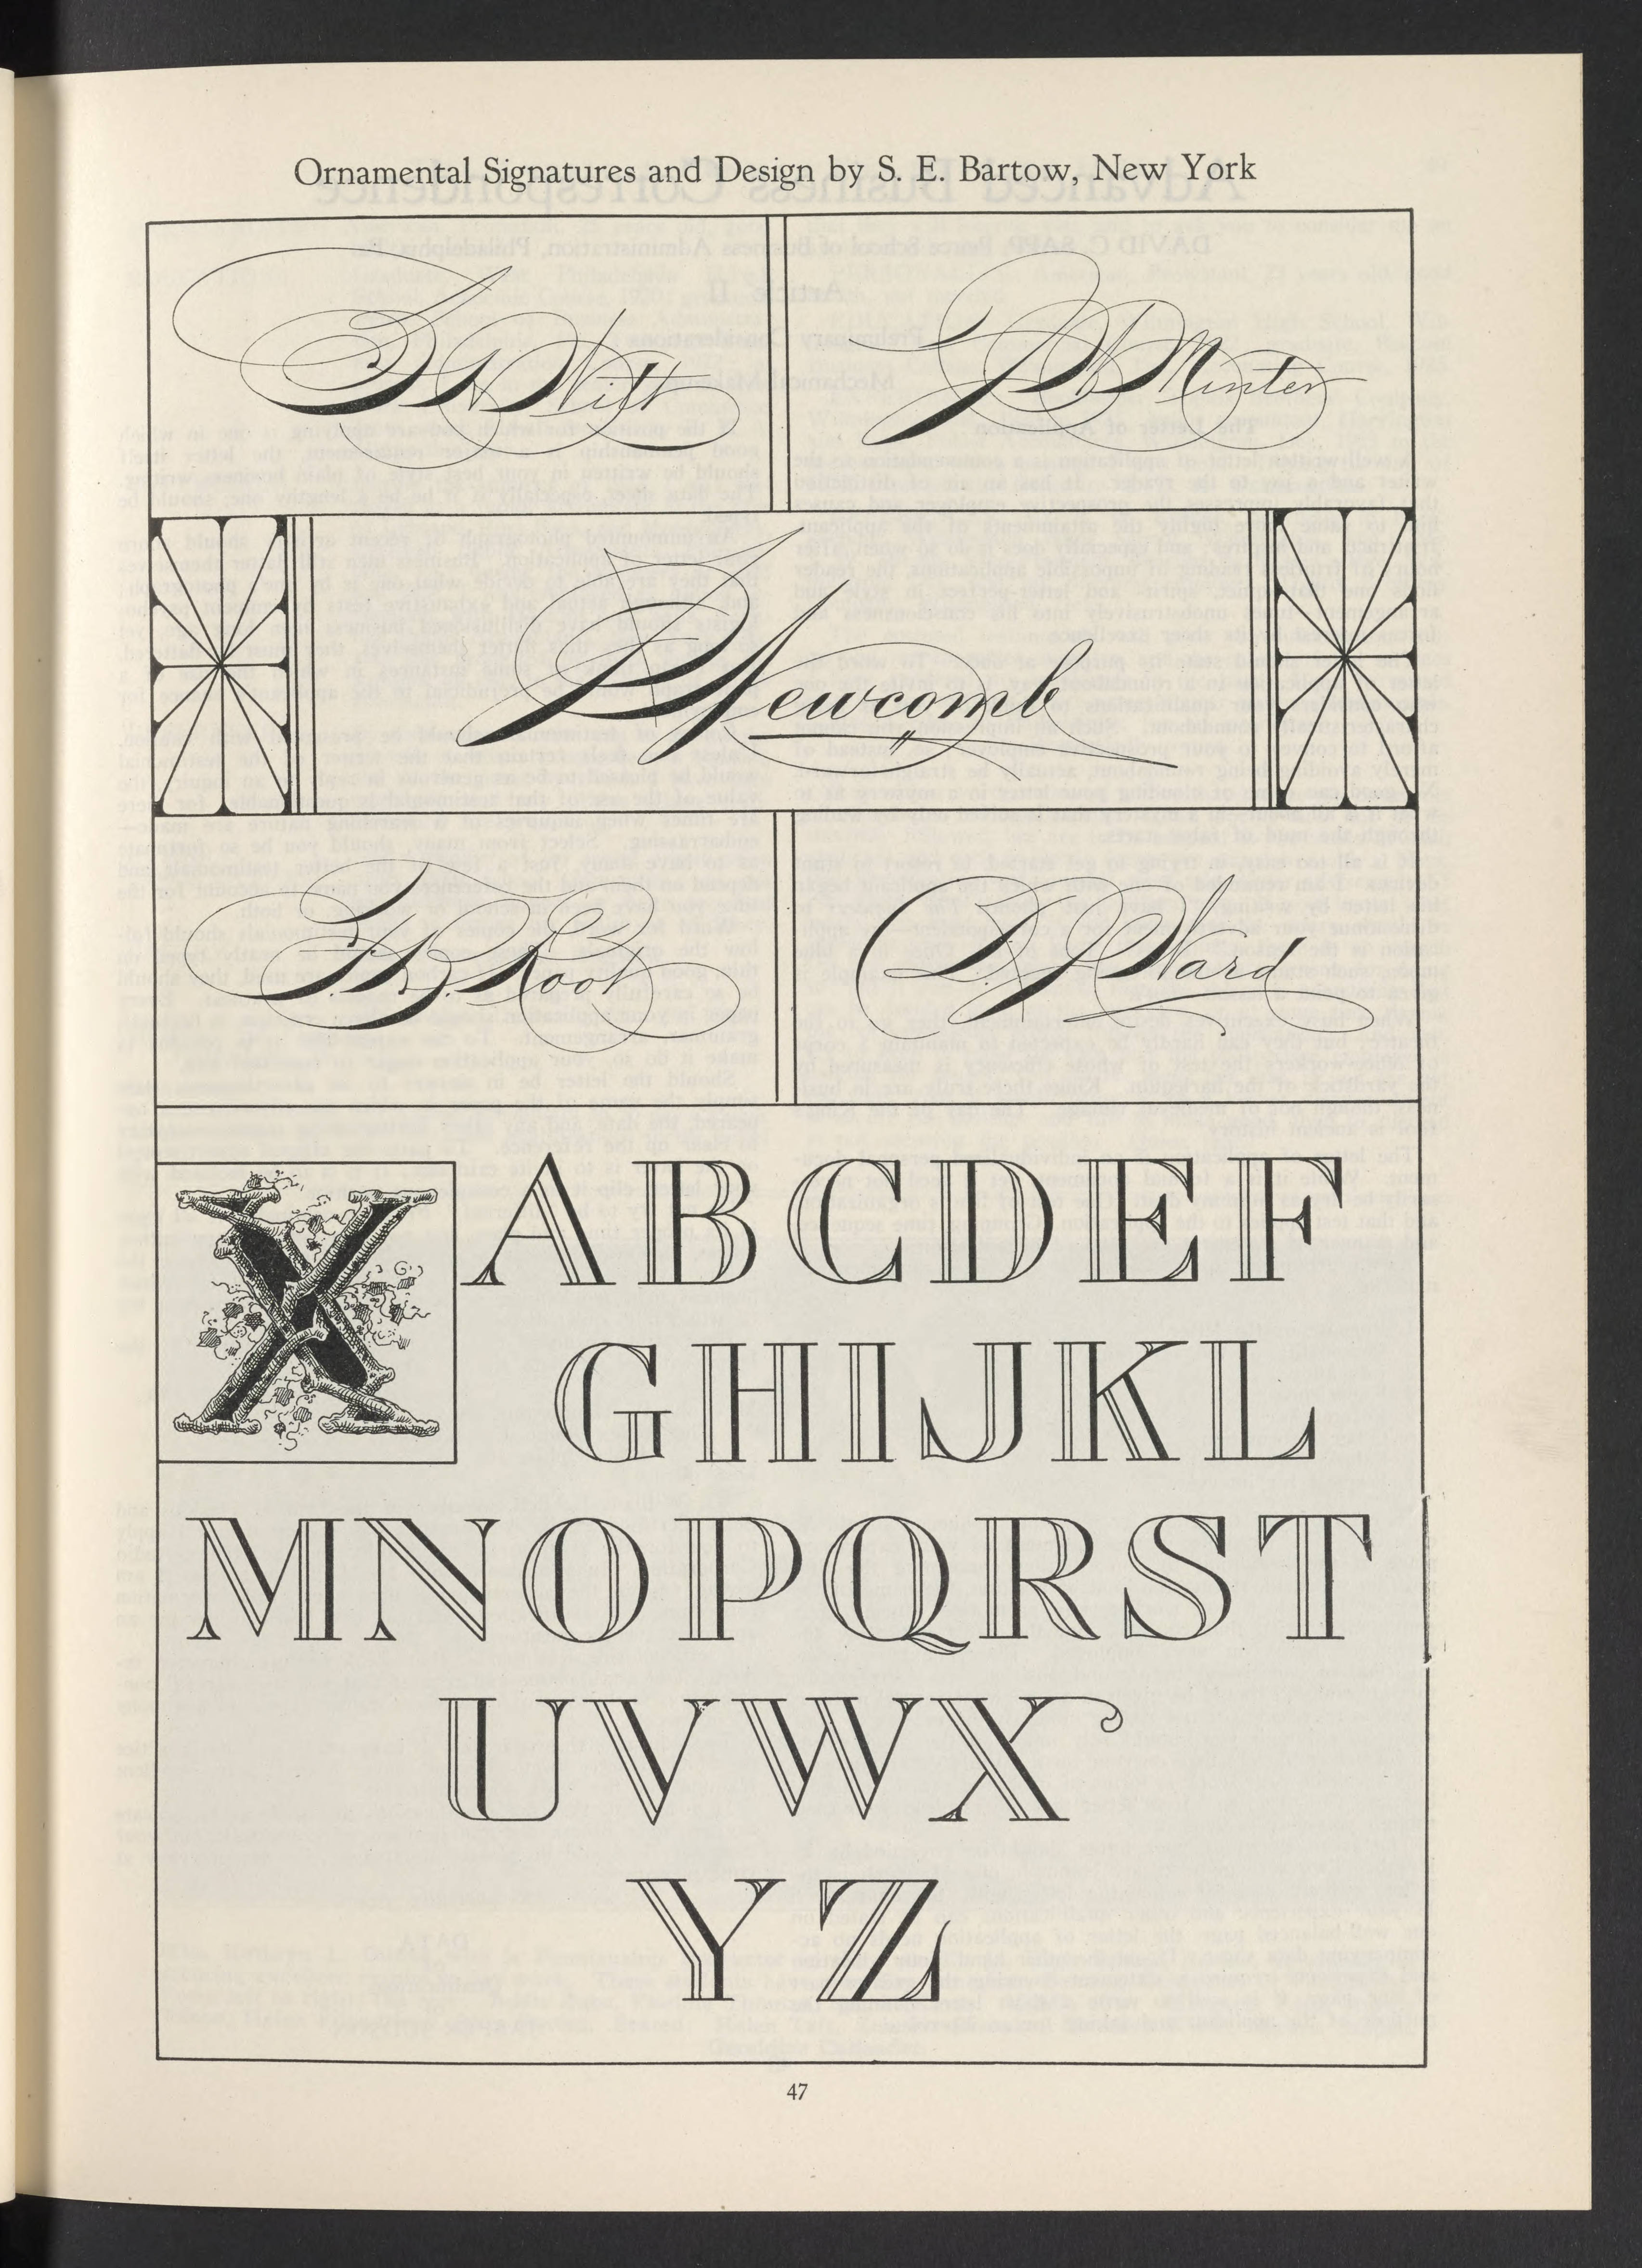 Ornamental Signatures and Design by S. E. Bartow, New York
Witt
Minter
P Newcomb
F. B. Root
D. J. Ward
X
A B C D E F
G H I J K L
M N O P Q R S T
U V W X
Y Z
47